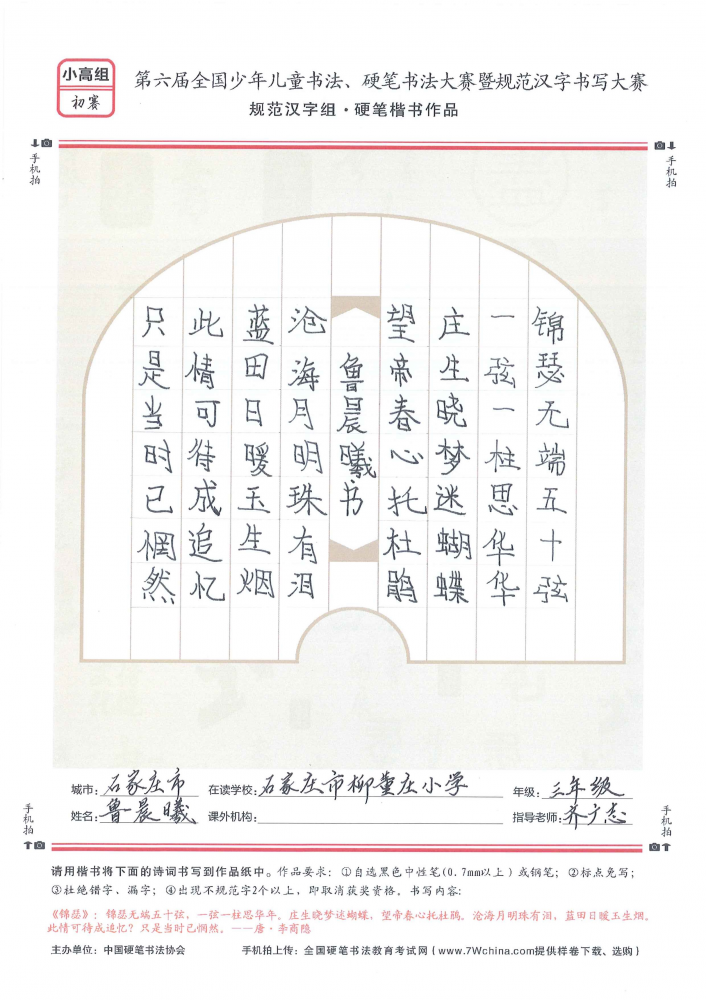 小高组
初赛
第六届全国少年儿童书法、硬笔书法大赛暨规范汉字书写大赛
规范汉字组·硬笔楷书作品
手机拍
手机拍
锦瑟无端五十弦
一弦一柱思华华
庄生晓梦迷蝴蝶
望帝春心托杜鹃
鲁晨曦书
沧海月明珠有泪
蓝田日暖玉生烟
此情可待成追忆
只是当时已惘然
城市：石家庄市 在读学校：石家庄市柳董庄小学 年级：三年级
姓名：鲁晨曦 课外机构： 指导老师：齐广志
手机拍
手机拍
请用楷书将下面的诗词书写到作品纸中。作品要求：①自选黑色中性笔(0.7mm以上)或钢笔；②标点免写；
③杜绝错字、漏字；④出现不规范字2个以上，即取消获奖资格。书写内容：
《锦瑟》：锦瑟无端五十弦，一弦一柱思华年。庄生晓梦迷蝴蝶，望帝春心托杜鹃。沧海月明珠有泪，蓝田日暖玉生烟。
此情可待成追忆？只是当时已惘然。——唐·李商隐
主办单位：中国硬笔书法协会 手机拍上传：全国硬笔书法教育考试网（www.7Wchina.com提供样卷下载、选购）